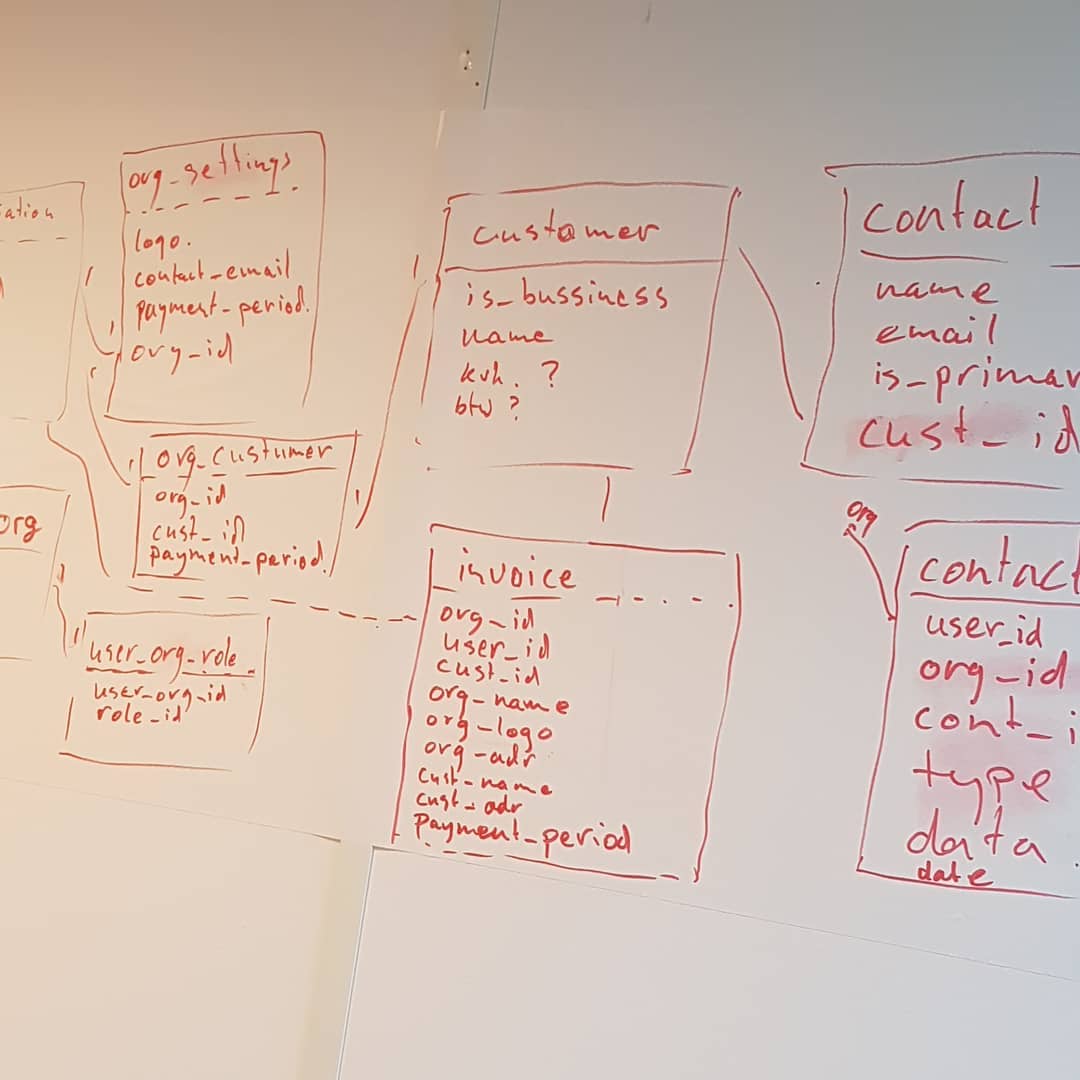 ation
org_settings
logo.
contact_email
payment_period.
org_id
org_custumer
org_id
cust_id
payment_period.
org
user_org_role
user_org_id
role_id
customer
is_bussiness
name
kvk. ?
btw ?
invoice
org_id
user_id
cust_id
org_name
org_logo
org_adr
cust_name
cust_adr
Payment_period
contact
name
email
is_primar
cust_id
org
contact
user_id
org_id
cont_i
type
data
date